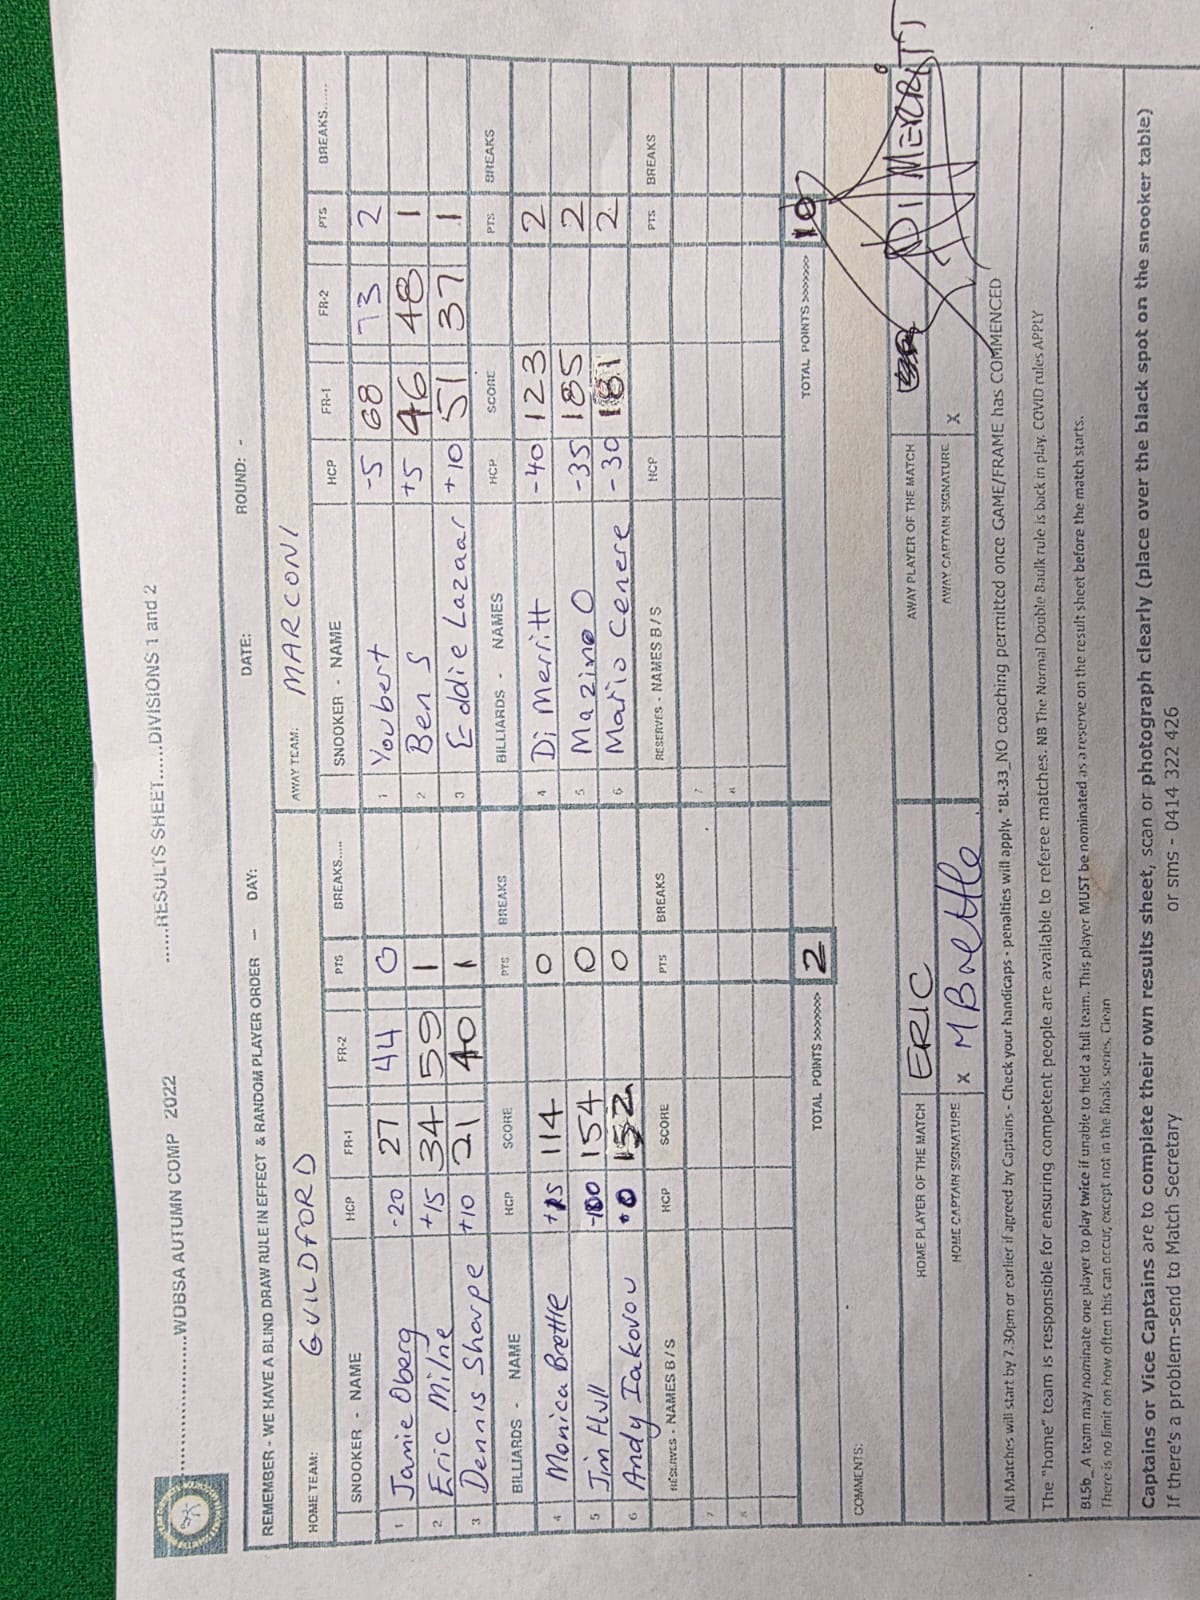 WDBSA AUTUMN COMP 2022 ......RESULTS SHEET......DIVISIONS 1 and 2
REMEMBER - WE HAVE A BLIND DRAW RULE IN EFFECT & RANDOM PLAYER ORDER – DAY: DATE: ROUND: -
HOME TEAM: GUILDFORD AWAY TEAM: MARCONI
SNOOKER - NAME HCP FR-1 FR-2 PTS BREAKS..... SNOOKER - NAME HCP FR-1 FR-2 PTS BREAKS......
1 Jamie Oberg -20 27 44 0 1 Youbert -5 68 73 2
2 Eric Milne +15 34 59 1 2 Ben S +5 46 48 1
3 Dennis Sharpe +10 21 40 1 3 Eddie Lazaar +10 51 37 1
BILLIARDS - NAME HCP SCORE PTS BREAKS BILLIARDS - NAMES HCP SCORE PTS BREAKS
4 Monica Brettle 114 0 4 Di Merritt -40 123 2
5 Jim Hull -100 154 0 5 Mazino O -35 185 2
6 Andy Iakovou 152 0 6 Mario Cenere -30 181 2
RESERVES - NAMES B/S HCP SCORE PTS BREAKS RESERVES - NAMES B/S HCP PTS BREAKS
7 7
8 8
TOTAL POINTS >>>>>>> 2 TOTAL POINTS >>>>>>> 10
COMMENTS:
HOME PLAYER OF THE MATCH ERIC AWAY PLAYER OF THE MATCH DI MERRITT
HOME CAPTAIN SIGNATURE X M Brettle AWAY CAPTAIN SIGNATURE X
All Matches will start by 7.30pm or earlier if agreed by Captains - Check your handicaps - penalties will apply. *BL-33_NO coaching permitted once GAME/FRAME has COMMENCED
The "home" team is responsible for ensuring competent people are available to referee matches. NB The Normal Double Baulk rule is back in play. COVID rules APPLY
BL5b_A team may nominate one player to play twice if unable to field a full team. This player MUST be nominated as a reserve on the result sheet before the match starts.
There is no limit on how often this can occur, except not in the finals series. Clean
Captains or Vice Captains are to complete their own results sheet, scan or photograph clearly (place over the black spot on the snooker table)
If there's a problem-send to Match Secretary or sms - 0414 322 426